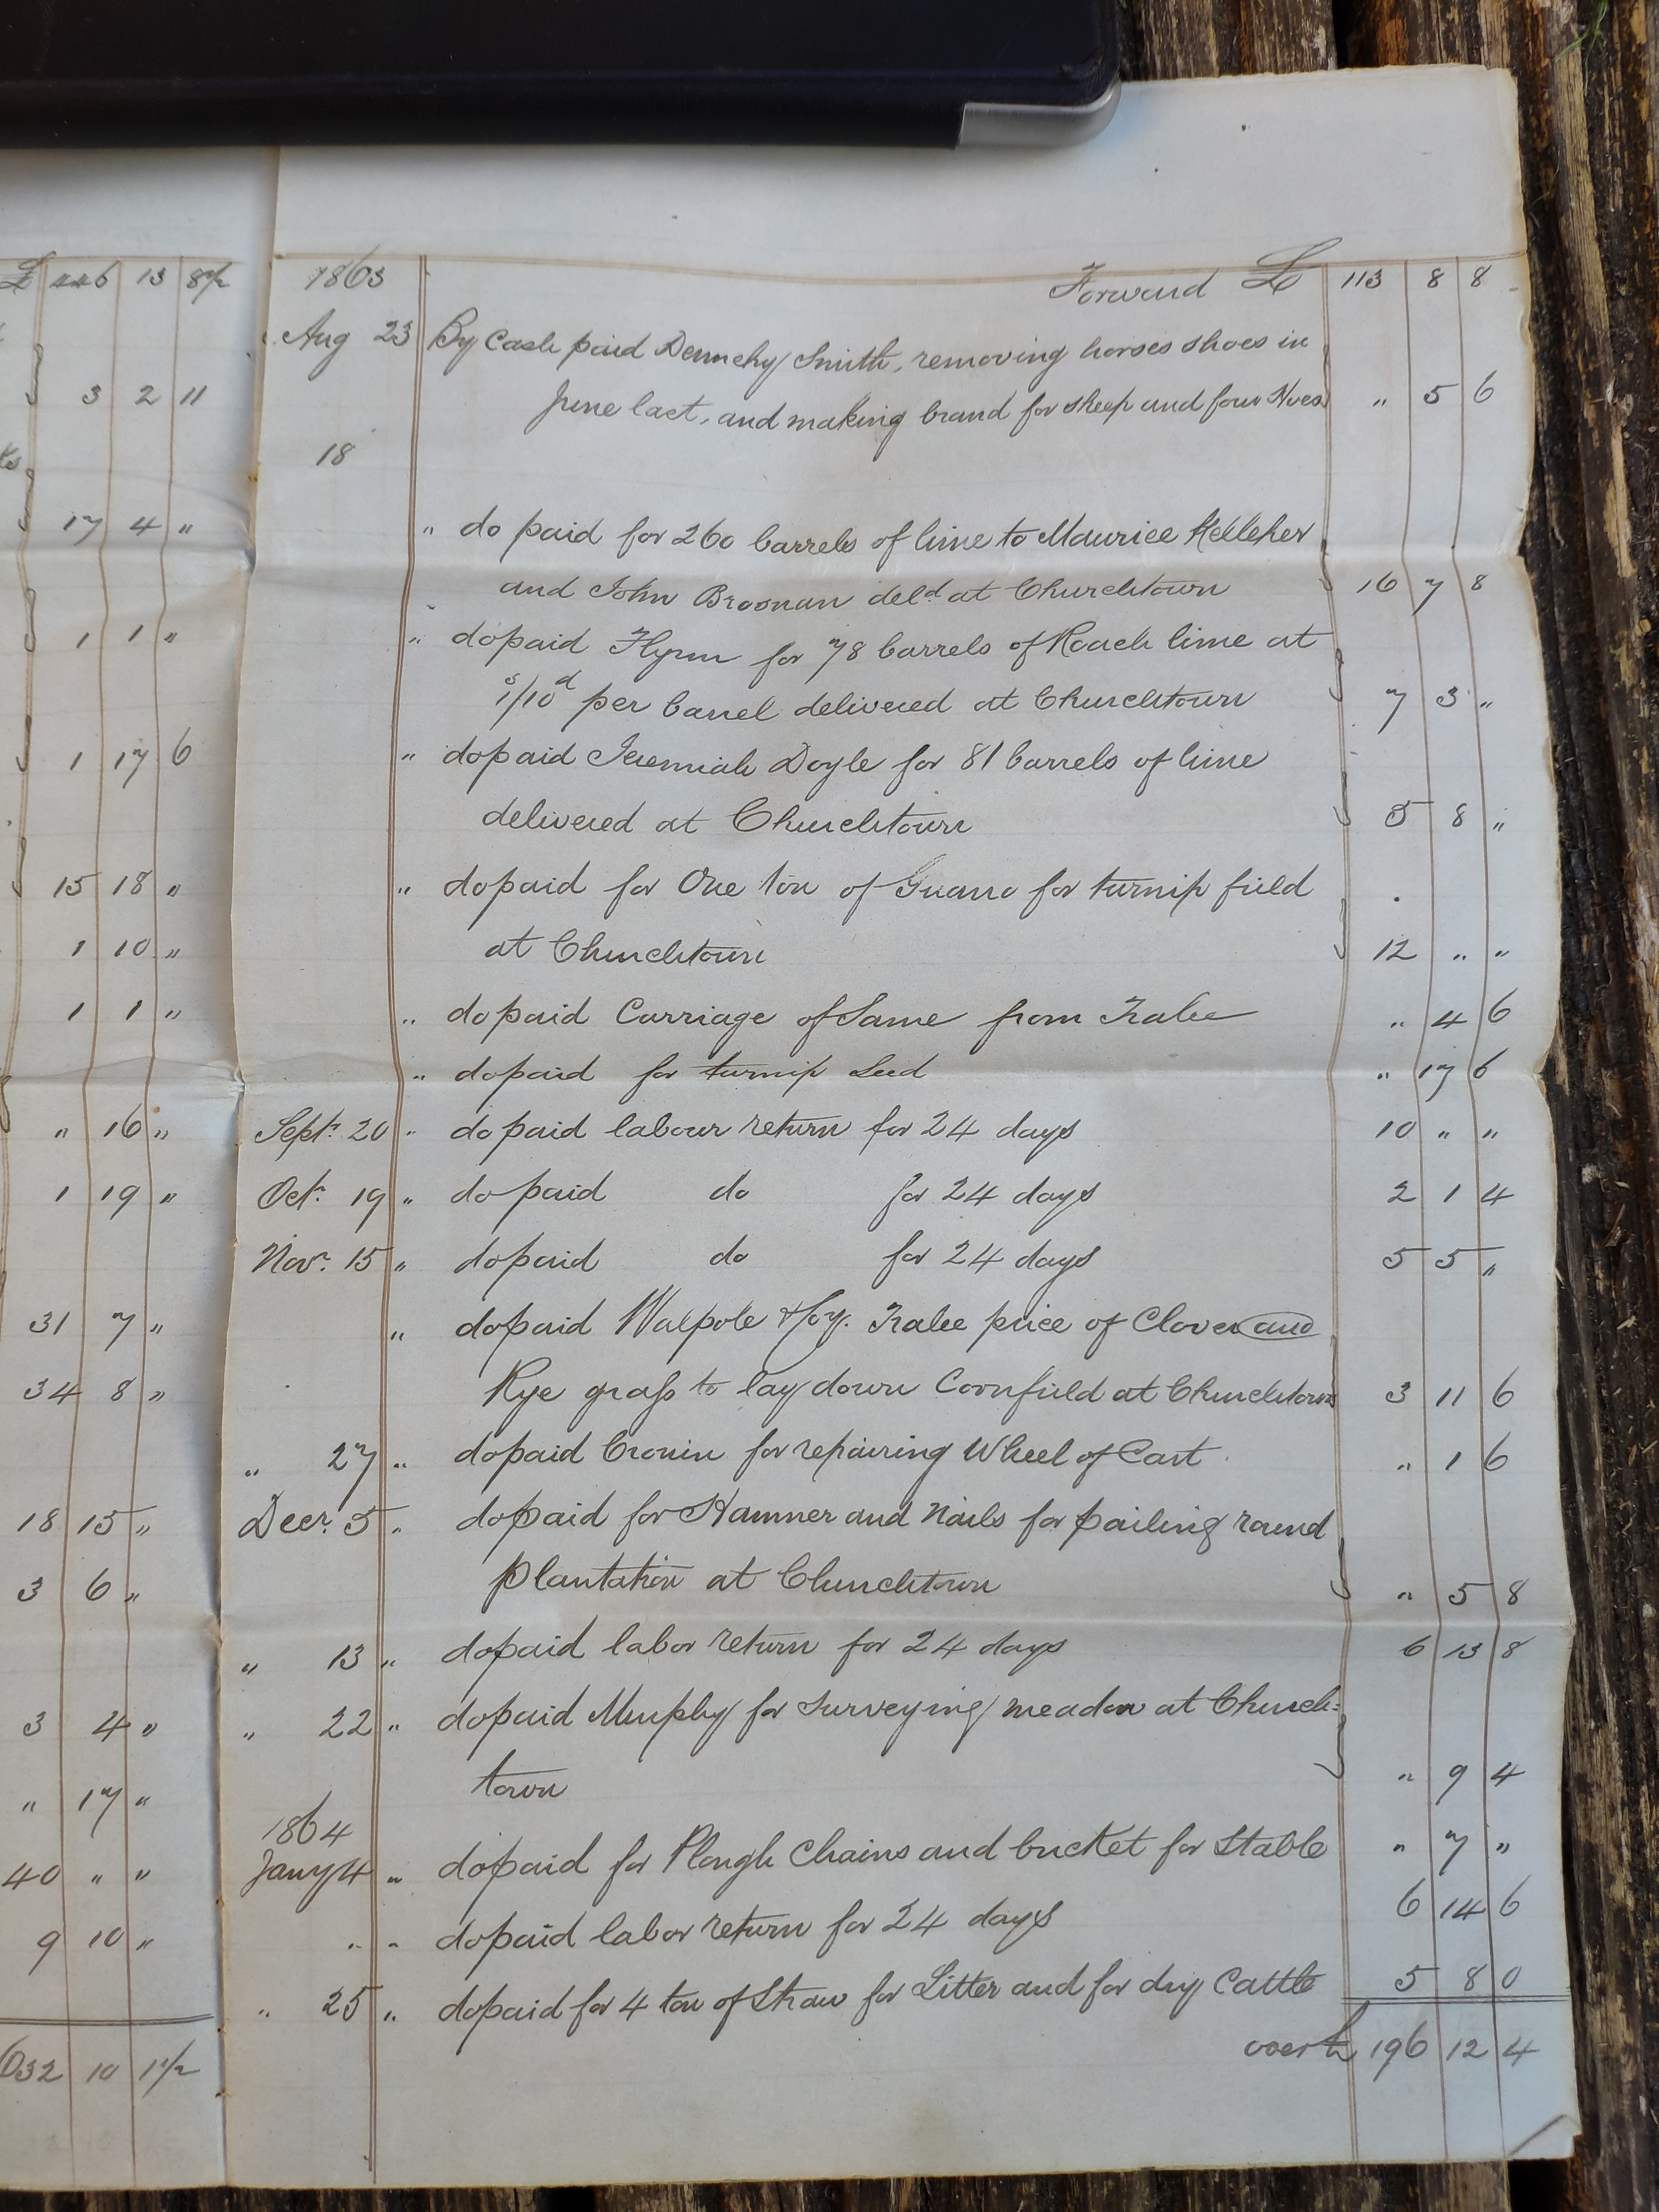 £ 446 13 8½
3 2 11
17 4 "
1 1 "
1 17 6
15 18 "
1 10 "
1 1 "
" 16 "
1 19 "
31 7 "
34 8 "
18 15 "
3 6 "
3 4 "
" 17 "
40 " "
9 10 "
632 10 1½
1863 Forward £ 113 8 8
Aug 23 By Cash paid Dennehy Smith, removing horses shoes in
June last, and making brand for sheep and four " 5 6
18
" do paid for 260 barrels of lime to Maurice Kelleher
and John Brosnan deld at Churchtown 16 7 8
" do paid Flynn for 78 barrels of Roach lime at
1s/10d per barrel delivered at Churchtown 7 3 "
" do paid Jeremiah Doyle for 81 barrels of lime
delivered at Churchtown 5 8 "
" do paid for One ton of Guano for turnip field
at Churchtown 12 " "
" do paid Carriage of Same from Tralee " 4 6
" do paid for turnip Seed " 17 6
Sept. 20 " do paid labour return for 24 days 10 " "
Oct. 19 " do paid do for 24 days 2 1 4
Novr. 15 " do paid do for 24 days 5 5 "
" do paid Walpole & Coy. Tralee price of Clover and
Rye grass to lay down Cornfield at Churchtown 3 11 6
" 27 " do paid Cronin for repairing Wheel of Cart " 1 6
Decr. 5 " do paid for Hammer and Nails for pailing round
Plantation at Churchtown " 5 8
" 13 " do paid labor return for 24 days 6 13 8
" 22 " do paid Murphy for Surveying meadow at Church=
town " 9 4
1864
Jany 4 " do paid for Plough Chains and bucket for Stable " 7 "
" " do paid labor return for 24 days 6 14 6
" 25 " do paid for 4 ton of Straw for Litter and for dry Cattle 5 8 0
over £ 196 12 4